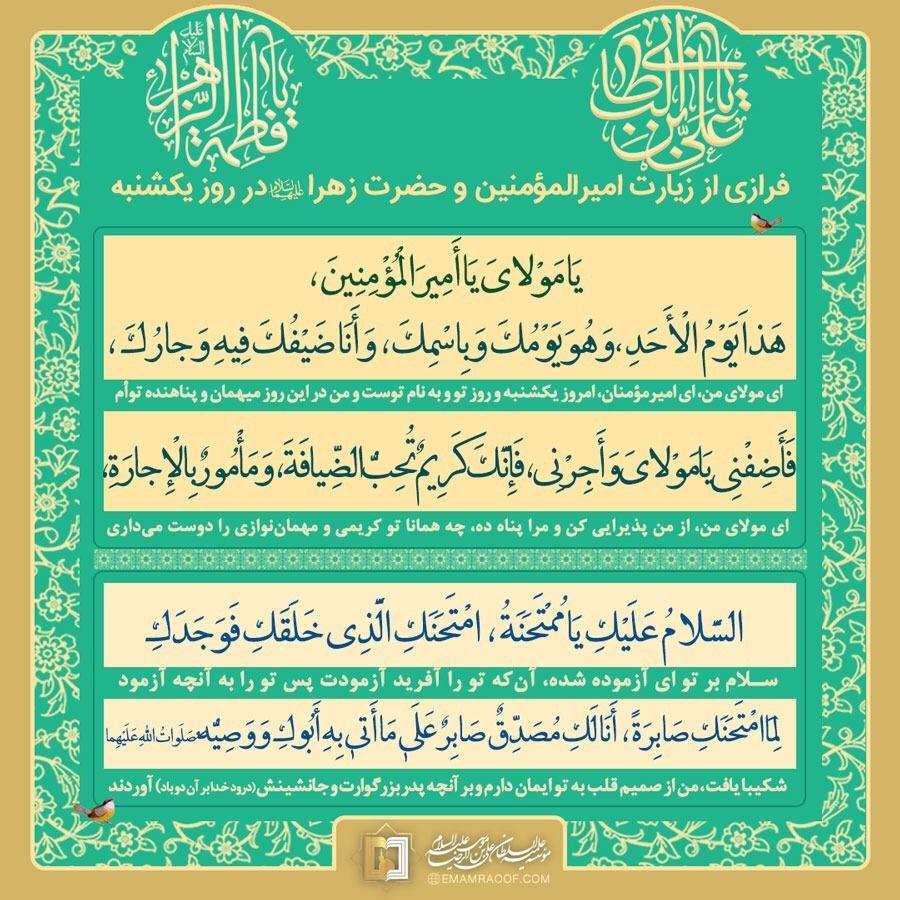 يا علي بن ابي طالب
يا فاطمة الزهرا عليها السلام
فرازی از زیارت امیرالمؤمنین و حضرت زهرا علیهما السلام در روز یکشنبه
يَا مَوْلاىَ يَا أَمِيرَ الْمُؤْمِنِينَ،
هَذَا يَوْمُ الْأَحَدِ، وَ هُوَ يَوْمُكَ وَ بِاسْمِكَ، وَ أَنَا ضَيْفُكَ فِيهِ وَ جارُكَ،
ای مولای من، ای امیر مؤمنان، امروز یکشنبه و روز تو و به نام توست و من در این روز میهمان و پناهنده توأم
فَأَضِفْنِى يَا مَوْلاىَ وَ أَجِرْنِى، فَإِنَّكَ كَرِيمٌ تُحِبُّ الضِّيافَةَ، وَ مَأْمُورٌ بِالْإِجارَةِ،
ای مولای من، از من پذیرایی کن و مرا پناه ده، چه همانا تو کریمی و مهمان‌نوازی را دوست می‌داری
السَّلامُ عَلَيْكِ يَا مُمْتَحَنَةُ، امْتَحَنَكِ الَّذِى خَلَقَكِ فَوَجَدَكِ
سـلام بر تو ای آزموده شده، آن‌که تو را آفرید آزمودت پس تو را به آنچه آزمود
لِمَا امْتَحَنَكِ صَابِرَةً، أَنَا لَكِ مُصَدِّقٌ صَابِرٌ عَلَى مَا أَتىٰ بِهِ أَبُوكِ وَ وَصِيُّهُ صَلَواتُ اللهِ عَلَيْهِما
شکیبا یافت، من از صمیم قلب به تو ایمان دارم و بر آنچه پدر بزرگوارت و جانشینش (درود خدا بر آن دو باد) آوردند
EMAMRAOOF.COM